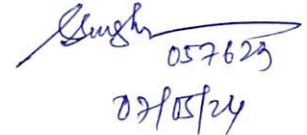 Singh
057623
07/05/24